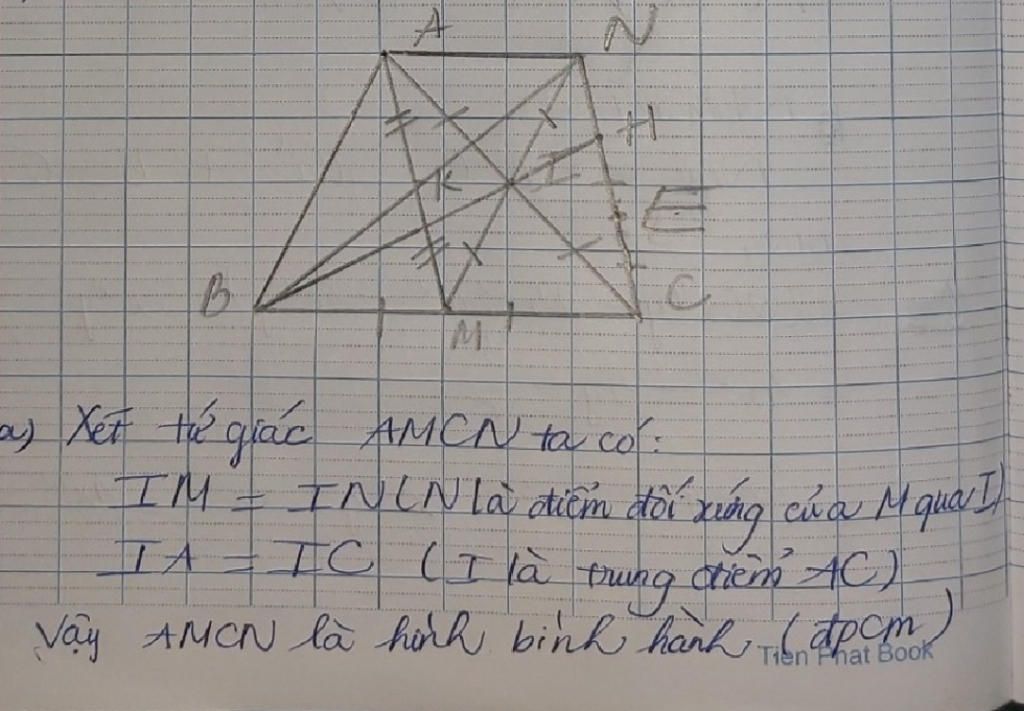 A N
H
K I
E
B C
M
a) Xét tứ giác AMCN ta có:
IM = IN (N là điểm đối xứng của M qua I)
IA = IC (I là trung điểm AC)
Vậy AMCN là hình bình hành (đpcm)
Tien Phat Book